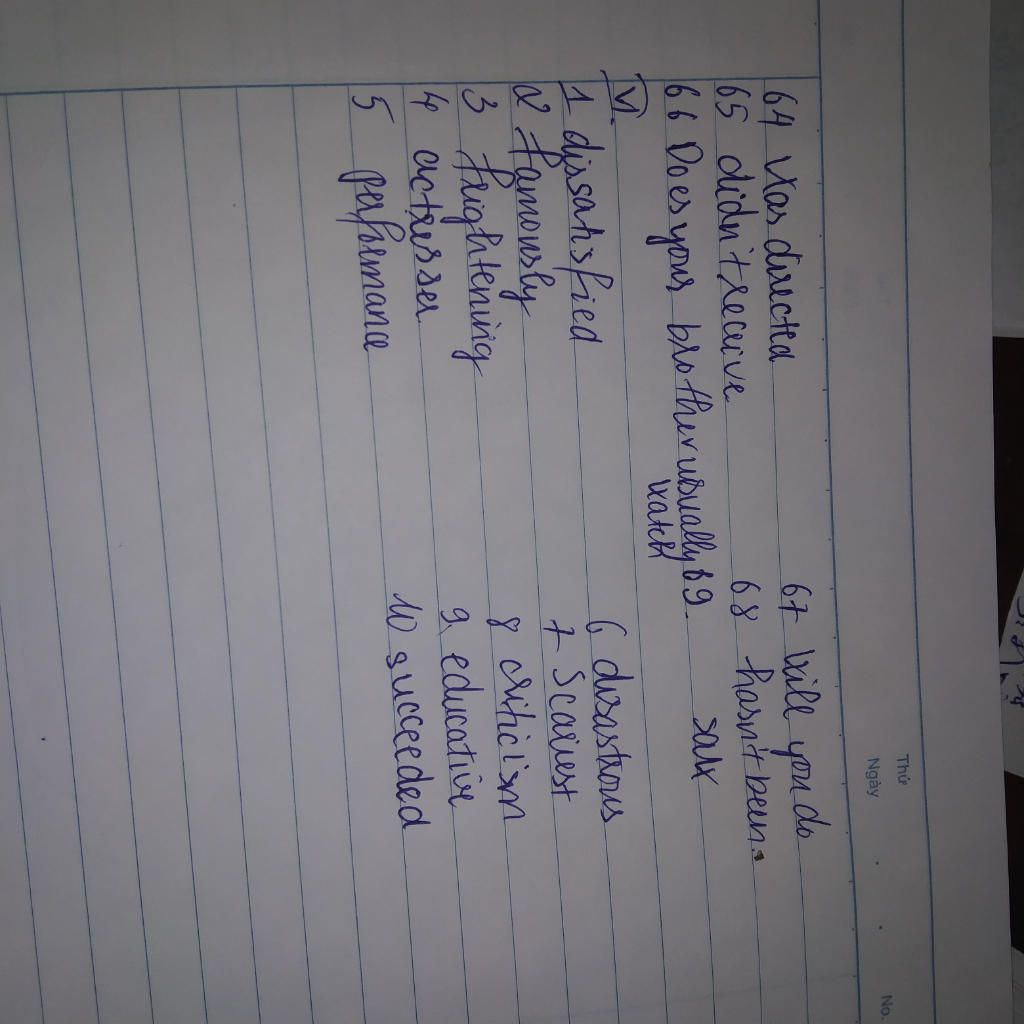 Thứ
Ngày No.
64 Was directed 67 Will you do
65 didn't receive 68 hasn't been.
66 Does your brother usually 69. saw
watch
VI.
1 dissatisfied 6 disastrous
2 famously 7 Scariest
3 frightening 8 criticism
4 actresses 9. educative
5 performance 10 succeeded